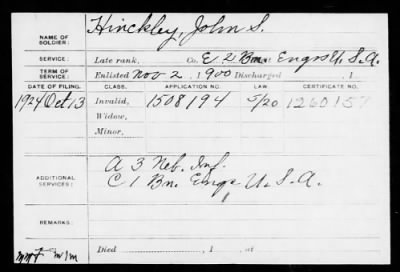 NAME OF SOLDIER: Hinckley, John S.
SERVICE: Late rank, Co. E 2 Bn. Engrs U. S. A.
TERM OF SERVICE: Enlisted Nov 2, 1900 Discharged , 1
DATE OF FILING. CLASS. APPLICATION NO. LAW. CERTIFICATE NO.
1924 Oct 13 Invalid, 1508194 5/20 1260157
Widow,
Minor,
ADDITIONAL SERVICES: A 3 Neb. Inf.
C 1 Bn. Engrs U. S. A.
REMARKS:
Died , 1 , at